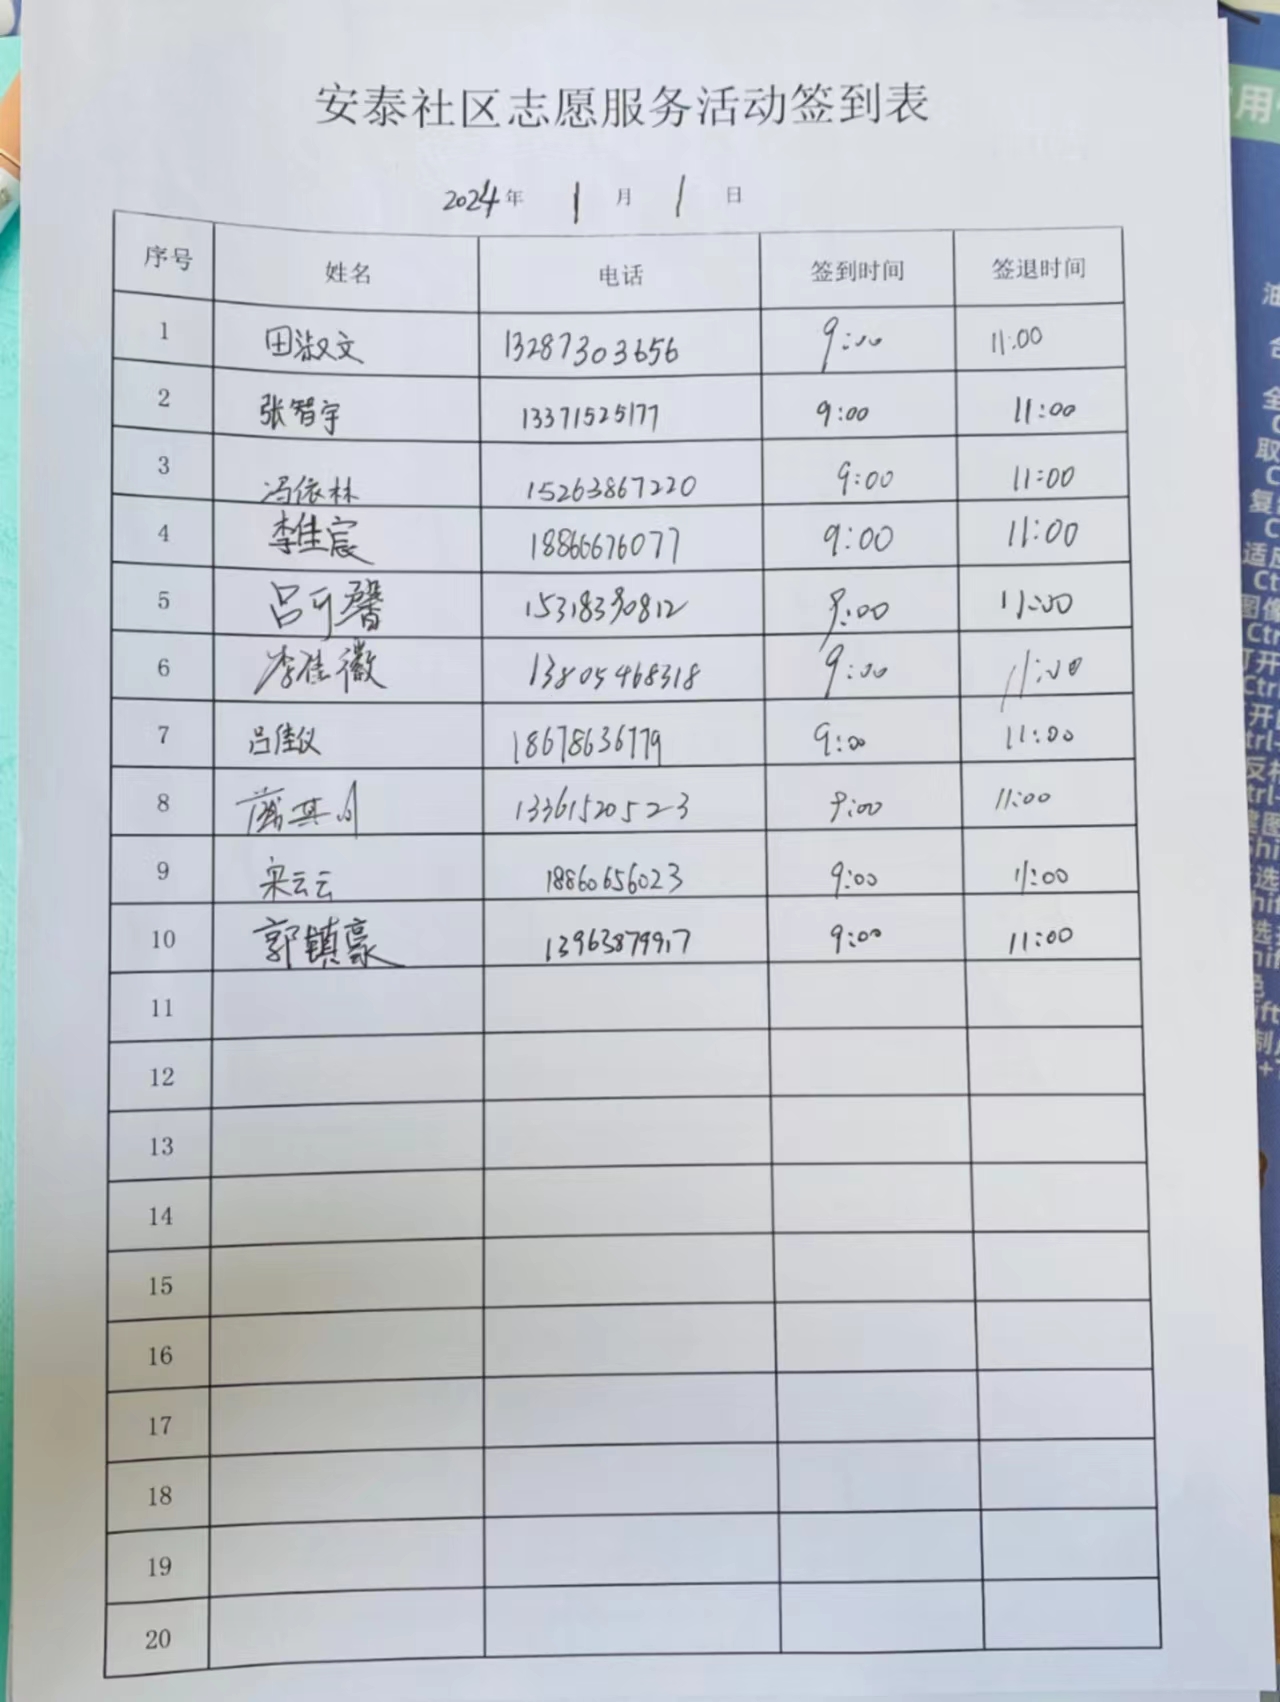 安泰社区志愿服务活动签到表
2024年 1 月 1 日
序号 姓名 电话 签到时间 签退时间
1 田淑文 13287303656 9:00 11:00
2 张智宇 13371525177 9:00 11:00
3 冯依林 15263867220 9:00 11:00
4 李佳宸 18866676077 9:00 11:00
5 吕可馨 15318390812 9:00 11:00
6 李佳徽 13805468318 9:00 11:00
7 吕佳仪 18678636779 9:00 11:00
8 13361520523 9:00 11:00
9 宋云云 18860656023 9:00 11:00
10 郭镇豪 13963879917 9:00 11:00
11
12
13
14
15
16
17
18
19
20
用
油
全
取
复
适应
Ct
图像
Ctr
打开
Ctrl